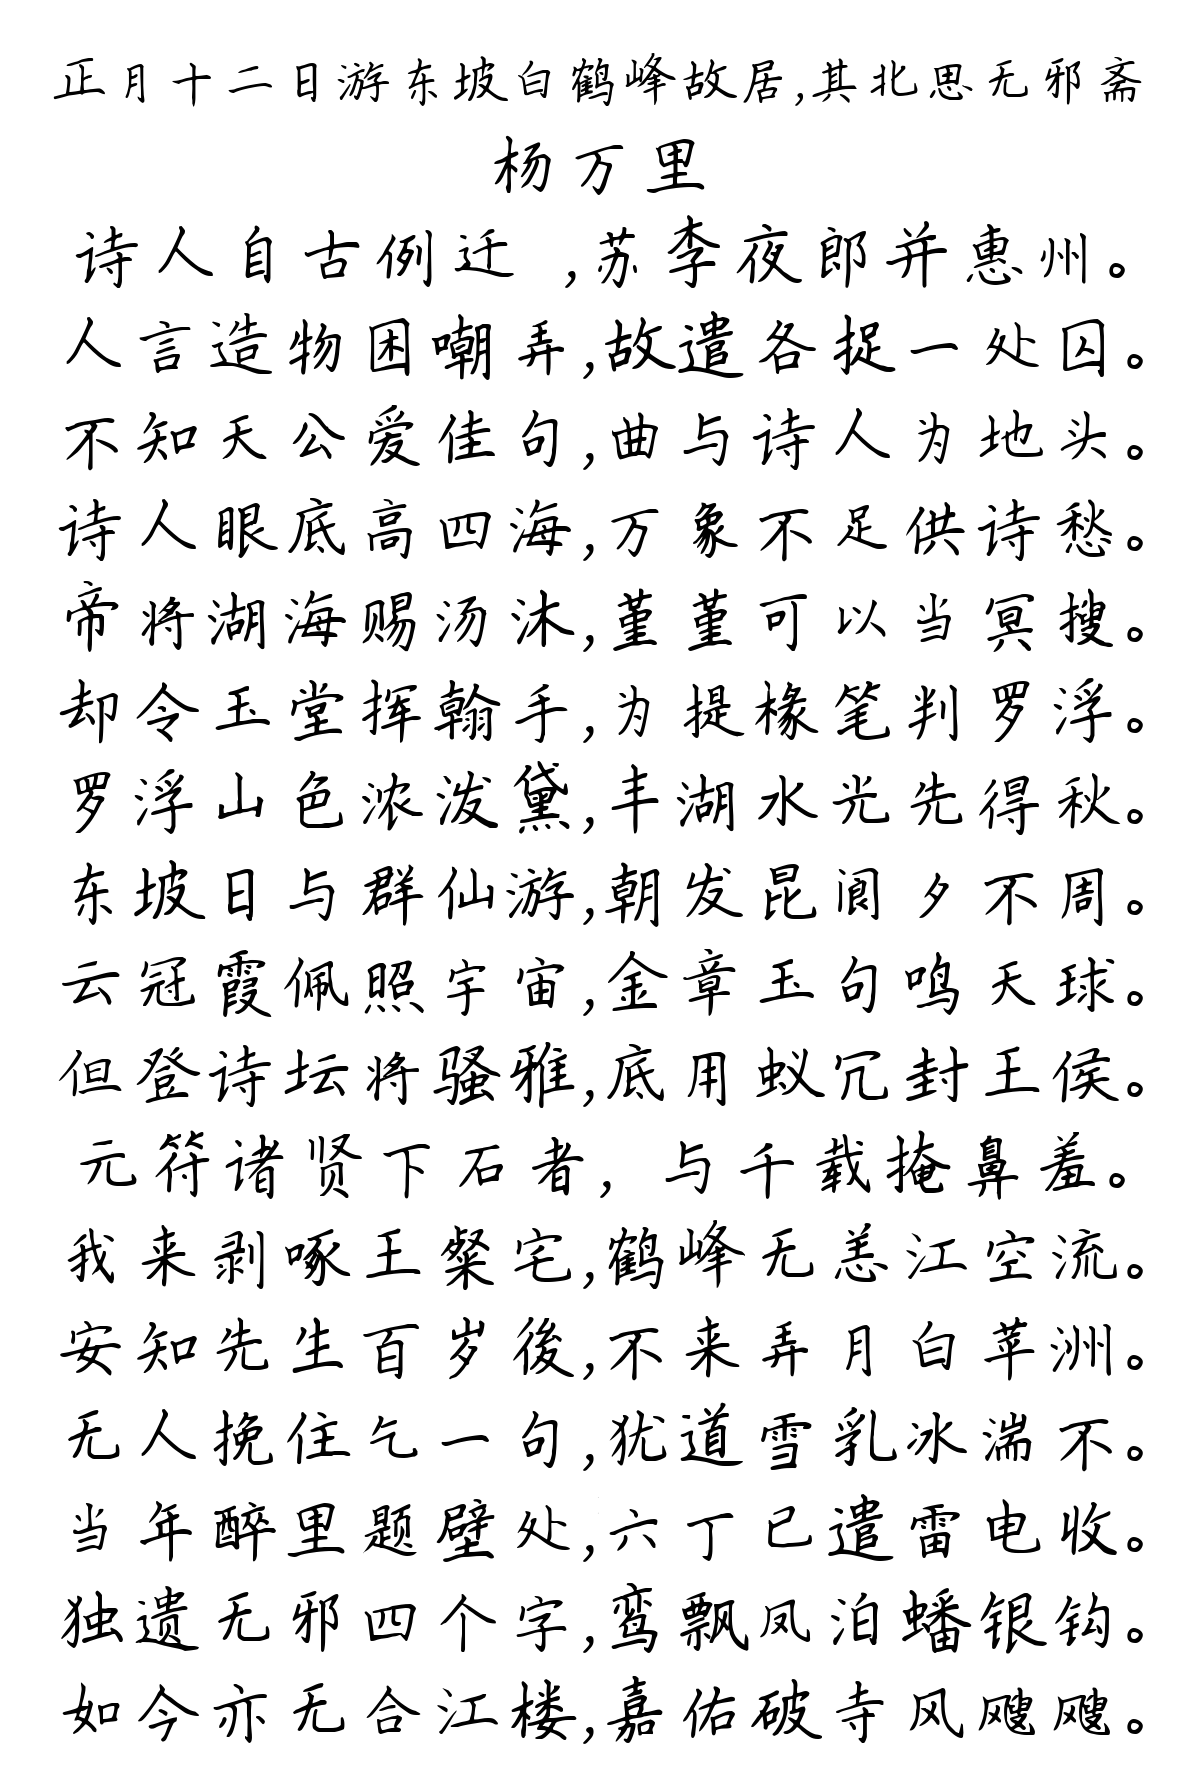 正月十二日游东坡白鹤峰故居,其北思无邪斋
杨万里
诗人自古例迁 ,苏李夜郎并惠州。
人言造物困嘲弄,故遣各捉一处囚。
不知天公爱佳句,曲与诗人为地头。
诗人眼底高四海,万象不足供诗愁。
帝将湖海赐汤沐,堇堇可以当冥搜。
却令玉堂挥翰手,为提椽笔判罗浮。
罗浮山色浓泼黛,丰湖水光先得秋。
东坡日与群仙游,朝发昆阆夕不周。
云冠霞佩照宇宙,金章玉句鸣天球。
但登诗坛将骚雅,底用蚁冗封王侯。
元符诸贤下石者，与千载掩鼻羞。
我来剥啄王粲宅,鹤峰无恙江空流。
安知先生百岁後,不来弄月白苹洲。
无人挽住乞一句,犹道雪乳冰湍不。
当年醉里题壁处,六丁已遣雷电收。
独遗无邪四个字,鸾飘凤泊蟠银钩。
如今亦无合江楼,嘉佑破寺风飕飕。